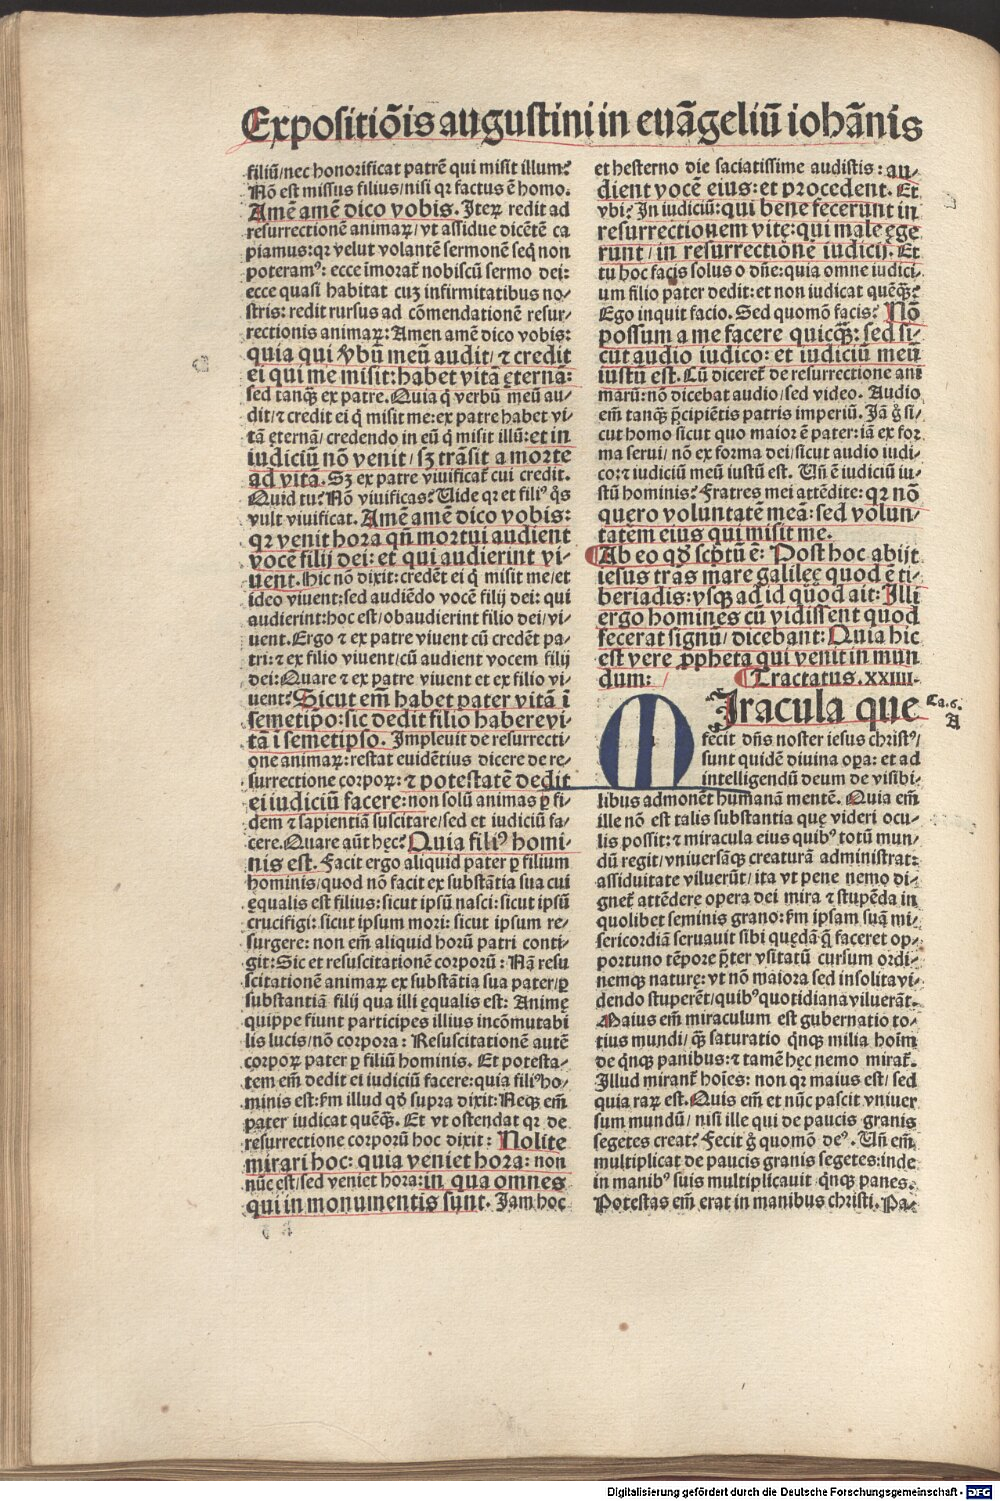 Expositiõis augustini in euãgeliũ iohãnis
filiũ/nec honorificat patrẽ qui misit illum?
Nõ est missus filius/nisi qꝛ factus ẽ homo.
Amẽ amẽ dico vobis. Iteꝝ redit ad
resurrectionẽ animaꝝ/vt assidue dicẽtẽ ca
piamus:qꝛ velut volantẽ sermonẽ seq̃ non
poteramꝰ: ecce ĩmorat᷑ nobiscũ sermo dei:
ecce quasi habitat cuꝫ infirmitatibus no⸗
stris: redit rursus ad cõmendationẽ resur⸗
rectionis animaꝝ: Amen amẽ dico vobis:
quia qui v̾bũ meũ audit/ ⁊ credit
ei qui me misit: habet vitã ęternã:
sed tanqꝫ ex patre. Quia q̃ verbũ meũ au⸗
dit/⁊ credit ei q̃ misit me: ex patre habet vi⸗
tã ęternã/credendo in eũ q̃ misit illũ: et in
iudiciũ nõ venit/ sꝫ trãsit a morte
ad vitã. Sꝫ ex patre viuificat᷑ cui credit.
Quid tu? Nõ viuificas? Uide qꝛ et filiꝰ q̃s
vult viuificat. Amẽ amẽ dico vobis:
qꝛ venit hora qñ mortui audient
vocẽ filij dei: et qui audierint vi⸗
uent. Hic nõ dixit: credẽt ei q̃ misit me/et
ideo viuent: sed audiẽdo vocẽ filij dei: qui
audierint: hoc est/obaudierint filio dei/vi⸗
uent. Ergo ⁊ ex patre viuent cũ credẽt pa⸗
tri: ⁊ ex filio viuent/cũ audient vocem filij
dei: Quare ⁊ ex patre viuent et ex filio vi⸗
uent? Sicut em̃ habet pater vitã ĩ
semetip̃o: sic dedit filio habere vi⸗
tã ĩ semetipso. Impleuit de resurrecti⸗
one animaꝝ: restat euidẽtius dicere de re⸗
surrectione corpoꝝ: ⁊ potestatẽ dedit
ei iudiciũ facere: non solũ animas ꝑ fi⸗
dem ⁊ sapientiã suscitare/sed et iudiciũ fa⸗
cere. Quare aũt hęc? Quia filiꝰ homi⸗
nis est. Facit ergo aliquid pater ꝑ filium
hominis/quod nõ facit ex substãtia sua cui
ęqualis est filius: sicut ipsũ nasci: sicut ipsũ
crucifigi: sicut ipsum mori: sicut ipsum re⸗
surgere: non em̃ aliquid horũ patri conti⸗
git: Sic et resuscitationẽ corporũ: Nã resu
scitationẽ animaꝝ ex substãtia sua pater/ꝑ
substantiã filij qua illi ęqualis est: Animę
quippe fiunt participes illius incõmutabi
lis lucis/nõ corpora: Resuscitationẽ autẽ
corpoꝝ pater ꝑ filiũ hominis. Et potesta⸗
tem em̃ dedit ei iudiciũ facere: quia filiꝰ ho⸗
minis est: s̃m illud qd̃ supra dixit: Neqꝫ em̃
pater iudicat quẽqꝫ. Et vt ostendat qꝛ de
resurrectione corporũ hoc dixit: Nolite
mirari hoc: quia veniet hora: non
nũc est/sed veniet hora: in qua omnes
qui in monumentis sunt. Iam hoc
et hesterno die saciatissime audistis: au⸗
dient vocẽ eius: et procedent. Et
vbi? In iudiciũ: qui bene fecerunt in
resurrectionem vitę: qui male ęge
runt/ in resurrectionẽ iudicij. Et
tu hoc facis solus o dñe: quia omne iudici⸗
um filio pater dedit: et non iudicat quẽqꝫ?
Ego inquit facio. Sed quomõ facis? Nõ
possum a me facere quicqꝫ: sed si⸗
cut audio iudico: et iudiciũ meũ
iustũ est. Cũ diceret᷑ de resurrectione ani
marũ: nõ dicebat audio/sed video. Audio
em̃ tanqꝫ p̃cipiẽtis patris imperiũ. Iã g̊ si⸗
cut homo sicut quo maior ẽ pater: iã ex for
ma serui/ nõ ex forma dei/sicut audio iudi⸗
co: ⁊ iudiciũ meũ iustũ est. Uñ ẽ iudiciũ iu⸗
stũ hominis? Fratres mei attẽdite: qꝛ nõ
quęro voluntatẽ meã: sed volun⸗
tatem eius qui misit me.
Ab eo qd̃ scp̃tũ ẽ: Post hoc abijt
iesus trãs mare galileę quod ẽ ti⸗
beriadis: vsqꝫ ad id quod ait: Illi
ergo homines cũ vidissent quod
fecerat signũ/ dicebant: Quia hic
est vere ꝓpheta qui venit in mun
dum: Tractatus. xxiiii.
MIracula que Ca.6.
A
fecit dñs noster iesus christꝰ/
sunt quidẽ diuina oꝑa: et ad
intelligendũ deum de visibi⸗
libus admonẽt humanã mentẽ. Quia em̃
ille nõ est talis substantia quę videri ocu⸗
lis possit: ⁊ miracula eius quibꝰ totũ mun⸗
dũ regit/vniuersãqꝫ creaturã administrat:
assiduitate viluerũt/ita vt pene nemo di⸗
gnet᷑ attẽdere opera dei mira ⁊ stupẽda in
quolibet seminis grano: s̃m ipsam suã mi⸗
sericordiã seruauit sibi quędã q̃ faceret op⸗
portuno tẽpore p̃ter vsitatũ cursum ordi⸗
nemqꝫ naturę: vt nõ maiora sed insolita vi⸗
dendo stuperẽt/quibꝰ quotidiana viluerãt.
Maius em̃ miraculum est gubernatio to⸗
tius mundi/ qꝫ saturatio q̃nqꝫ milia hoĩm
de q̃nqꝫ panibus: ⁊ tamẽ hęc nemo mirat᷑.
Illud mirant᷑ hoĩes: non qꝛ maius est/ sed
quia raꝝ est. Quis em̃ et nũc pascit vniuer
sum mundũ/ nisi ille qui de paucis granis
segetes creat? Fecit g̊ quomõ deꝰ. Uñ em̃
multiplicat de paucis granis segetes: inde
in manibꝰ suis multiplicauit q̃nqꝫ panes.
Potestas em̃ erat in manibus christi. Pa⸗
Digitalisierung gefördert durch die Deutsche Forschungsgemeinschaft - DFG